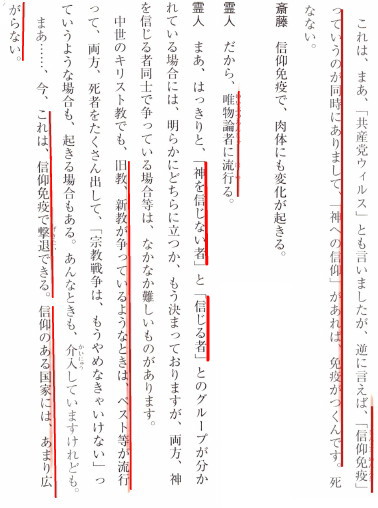 これは、まあ、「共産党ウィルス」とも言いましたが、逆に言えば、「信仰免疫」
っていうのが同時にありまして、「神への信仰」があれば、免疫がつくんです。死
なない。
斎藤　信仰免疫で、肉体にも変化が起きる。
霊人　だから、唯物論者に流行る。
霊人　まあ、はっきりと、「神を信じない者」と「信じる者」とのグループが分か
れている場合には、明らかにどちらに立つか、もう決まっておりますが、両方、神
を信じる者同士で争っている場合等は、なかなか難しいものがあります。
中世のキリスト教でも、旧教、新教が争っているようなときは、ペスト等が流行
って、両方、死者をたくさん出して、「宗教戦争は、もうやめなきゃいけない」っ
ていうような場合も、起きる場合もある。あんなときも、介入していますけれども。
まあ……、今、これは、信仰免疫で撃退できる。信仰のある国家には、あまり広
がらない。